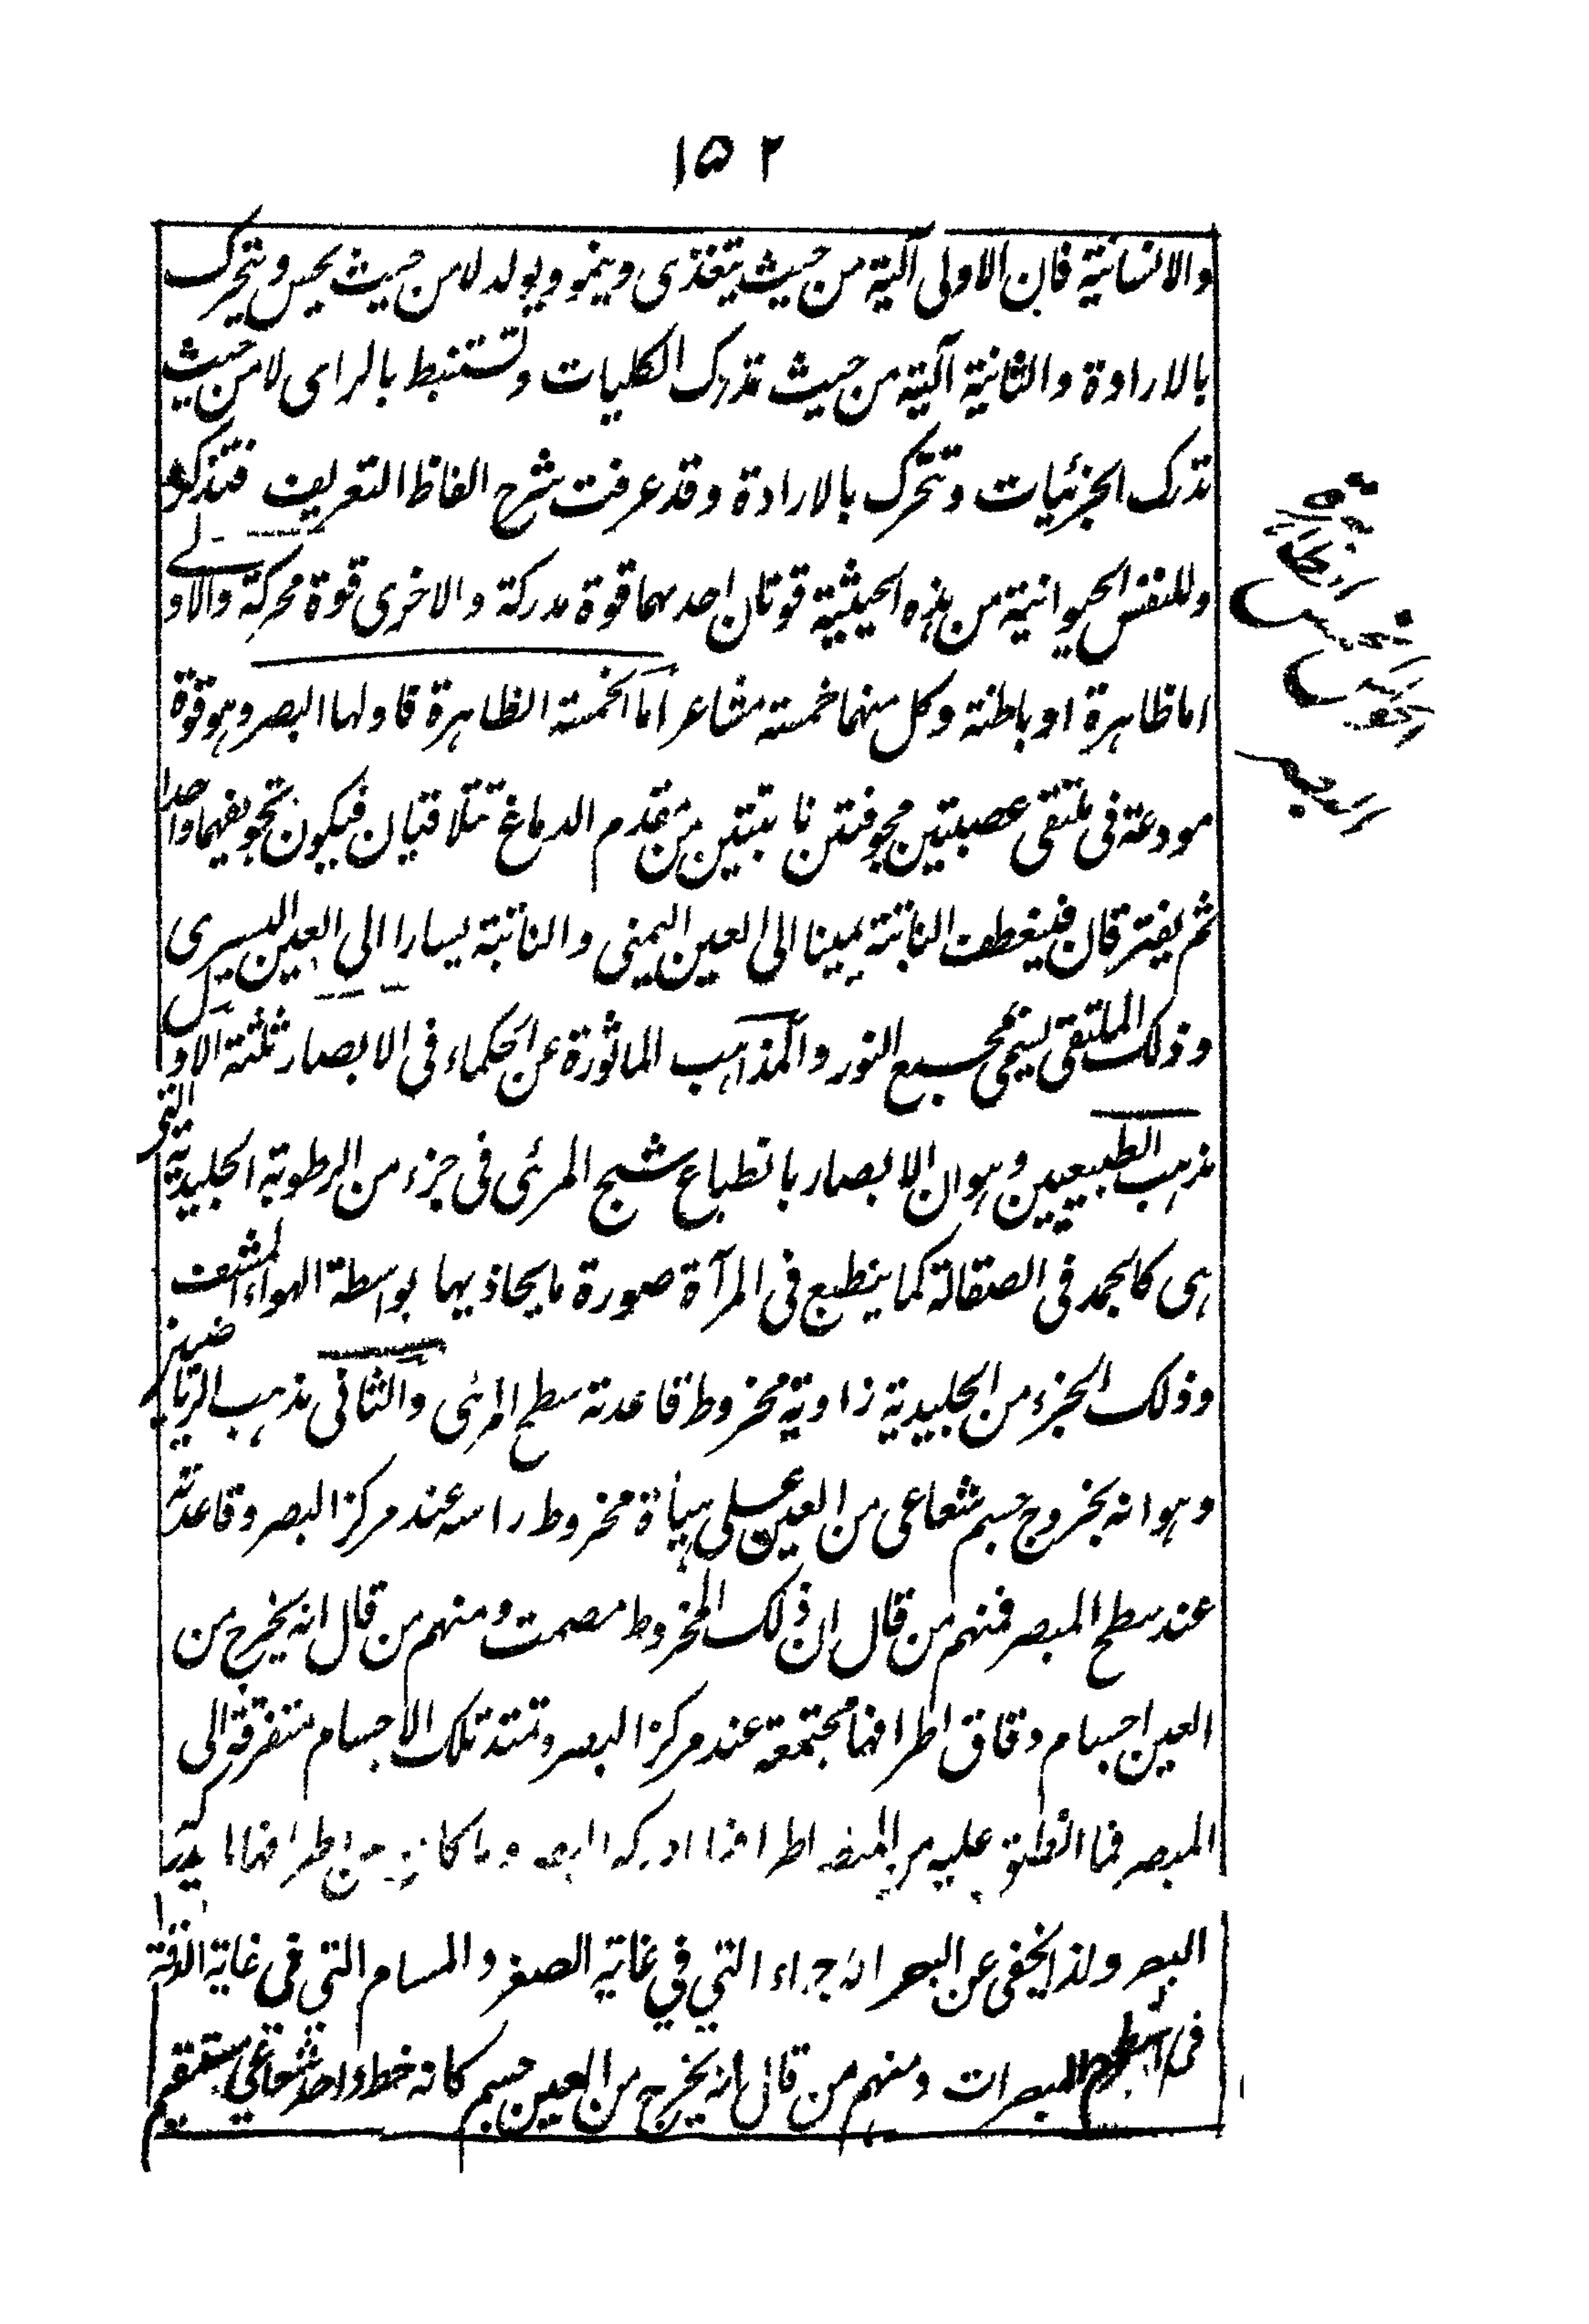 ١٥٢
والانسانية فان الاولى آلية من حيث يتغذى وينمو ويولد لا من حيث يحس ويتحرك
بالارادة والثانية آلية من حيث تدرك الكليات وتستنبط بالراى لا من حيث
تدرك الجزئيات وتتحرك بالارادة وقد عرفت شرح الفاظ التعريف فتذكر
وللنفس الحيوانية من هذه الحيثية قوتان احدهما قوة مدركة والاخرى قوة محركة والاولے
اما ظاهرة او باطنة وكل منهما خمسة مشاعر اما الخمسة الظاهرة فاولها البصر وهو قوة
مودعة فى ملتقى عصبتين مجوفتين نابتتين من مقدم الدماغ تتلاقيان فيكون تجويفهما واحدا
ثم يفترقان فينعطف النابتة يمينا الى العين اليمنى والنابتة يسارا الى العين اليسرى
وذلك الملتقى يسمى مجمع النور والمذاهب الماثورة عن الحكماء فى الابصار ثلثة الاول
مذهب الطبيعيين وهو ان الابصار بانطباع شبح المرئى فى جزء من الرطوبة الجليدية التى
هى كالجمد فى الصقالة كما ينطبع فى المرآة صورة ما يحاذيها بواسطة الهواء المشف
وذلك الجزء من الجليدية زاوية مخروط قاعدته سطح المرئى والثانى مذهب الرياضيين
وهو انه بخروج جسم شعاعى من العين على هياة مخروط راسه عند مركز البصر وقاعدته
عند سطح المبصر فمنهم من قال ان ذلك المخروط مصمت ومنهم من قال انه يخرج من
العين اجسام دقاق اطرافها مجتمعة عند مركز البصر وتمتد تلك الاجسام متفرقة الى
المبصر فما انطبق عليه من المبصر اطرافها ادركه البصر وما كان بين اطرافها لم يدركه
البصر ولذا يخفى عن البصر الاجزاء التي في غاية الصغر والمسام التي في غاية الدقة
فى سطح المبصرات ومنهم من قال انه يخرج من العين جسم كانه خط واحد شعاعي مستقيم
الحواس
الخمس
البصر